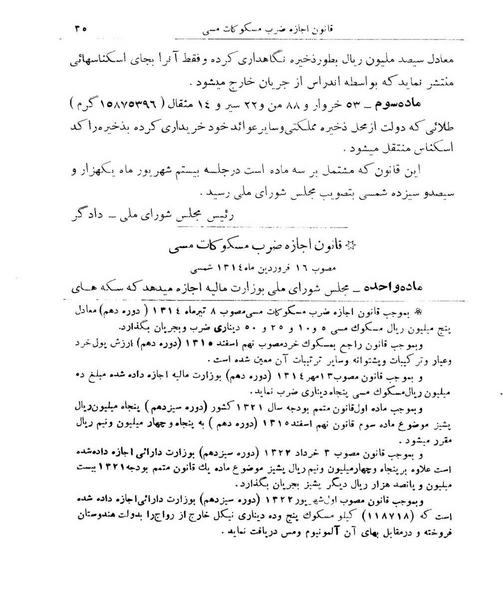 قانون اجازه ضرب مسکوکات مسی ۳۵
معادل سیصد ملیون ریال بطور ذخیره نگاهداری کرده و فقط آنرا بجای اسکناسهائی
منتشر نماید که بواسطه اندراس از جریان خارج میشود .
ماده سوم ــ ۵۳ خروار و ۸۸ من و ۲۲ سیر و ۱۴ مثقال ( ۱۵۸۷۵۳۹۶ گرم )
طلائی که دولت از محل ذخیره مملکتی و سایر عوائد خود خریداری کرده بذخیره راکد
اسکناس منتقل میشود .
این قانون که مشتمل بر سه ماده است در جلسه بیستم شهریور ماه یکهزار و
سیصد و سیزده شمسی بتصویب مجلس شورای ملی رسید .
رئیس مجلس شورای ملی ــ دادگر
※ قانون اجازه ضرب مسکوکات مسی
مصوب ۱۶ فروردین ماه ۱۳۱۴ شمسی
ماده واحده ــ مجلس شورای ملی بوزارت مالیه اجازه میدهد که سکه های
※ بموجب قانون اجازه ضرب مسکوکات مسی مصوب ۸ تیرماه ۱۳۱۴ (دوره دهم) معادل
پنج میلیون ریال مسکوک مسی ۵ و ۱۰ و ۲۵ و ۵۰ دیناری ضرب و بجریان بگذارد.
و بموجب قانون راجع بمسکوک خرد مصوب نهم اسفند ۱۳۱۵ (دوره دهم) ارزش پول خرد
و عیار و ترکیبات و پشتوانه و سایر ترتیبات آن معین شده است .
و بموجب قانون مصوب ۱۳ مهر ۱۳۱۴ (دوره دهم) بوزارت مالیه اجازه داده شده مبلغ ده
میلیون ریال مسکوک مسی پنجاه دیناری ضرب نماید .
و بموجب ماده اول قانون متمم بودجه سال ۱۳۲۱ کشور (دوره سیزدهم) پنجاه میلیون ریال
پشیز موضوع ماده سوم قانون نهم اسفند ۱۳۱۵ ( دوره دهم ) به پنجاه و چهار میلیون ونیم ریال
مقرر میشود .
و بموجب قانون مصوب ۳ خرداد ۱۳۲۲ (دوره سیزدهم) بوزارت دارائی اجازه داده شده
است علاوه بر پنجاه و چهار میلیون ونیم ریال پشیز موضوع ماده یک قانون متمم بودجه ۱۳۲۱ بیست
میلیون و پانصد هزار ریال دیگر پشیز بجریان بگذارد.
و بموجب قانون مصوب اول شهریور ۱۳۲۲ (دوره سیزدهم) بوزارت دارائی اجازه داده شده
است که (۱۱۸۷۱۸) کیلو مسکوک پنج و ده دیناری نیکل خارج از رواج را بدولت هندوستان
فروخته و در مقابل بهای آن آلومونیوم و مس دریافت نماید .